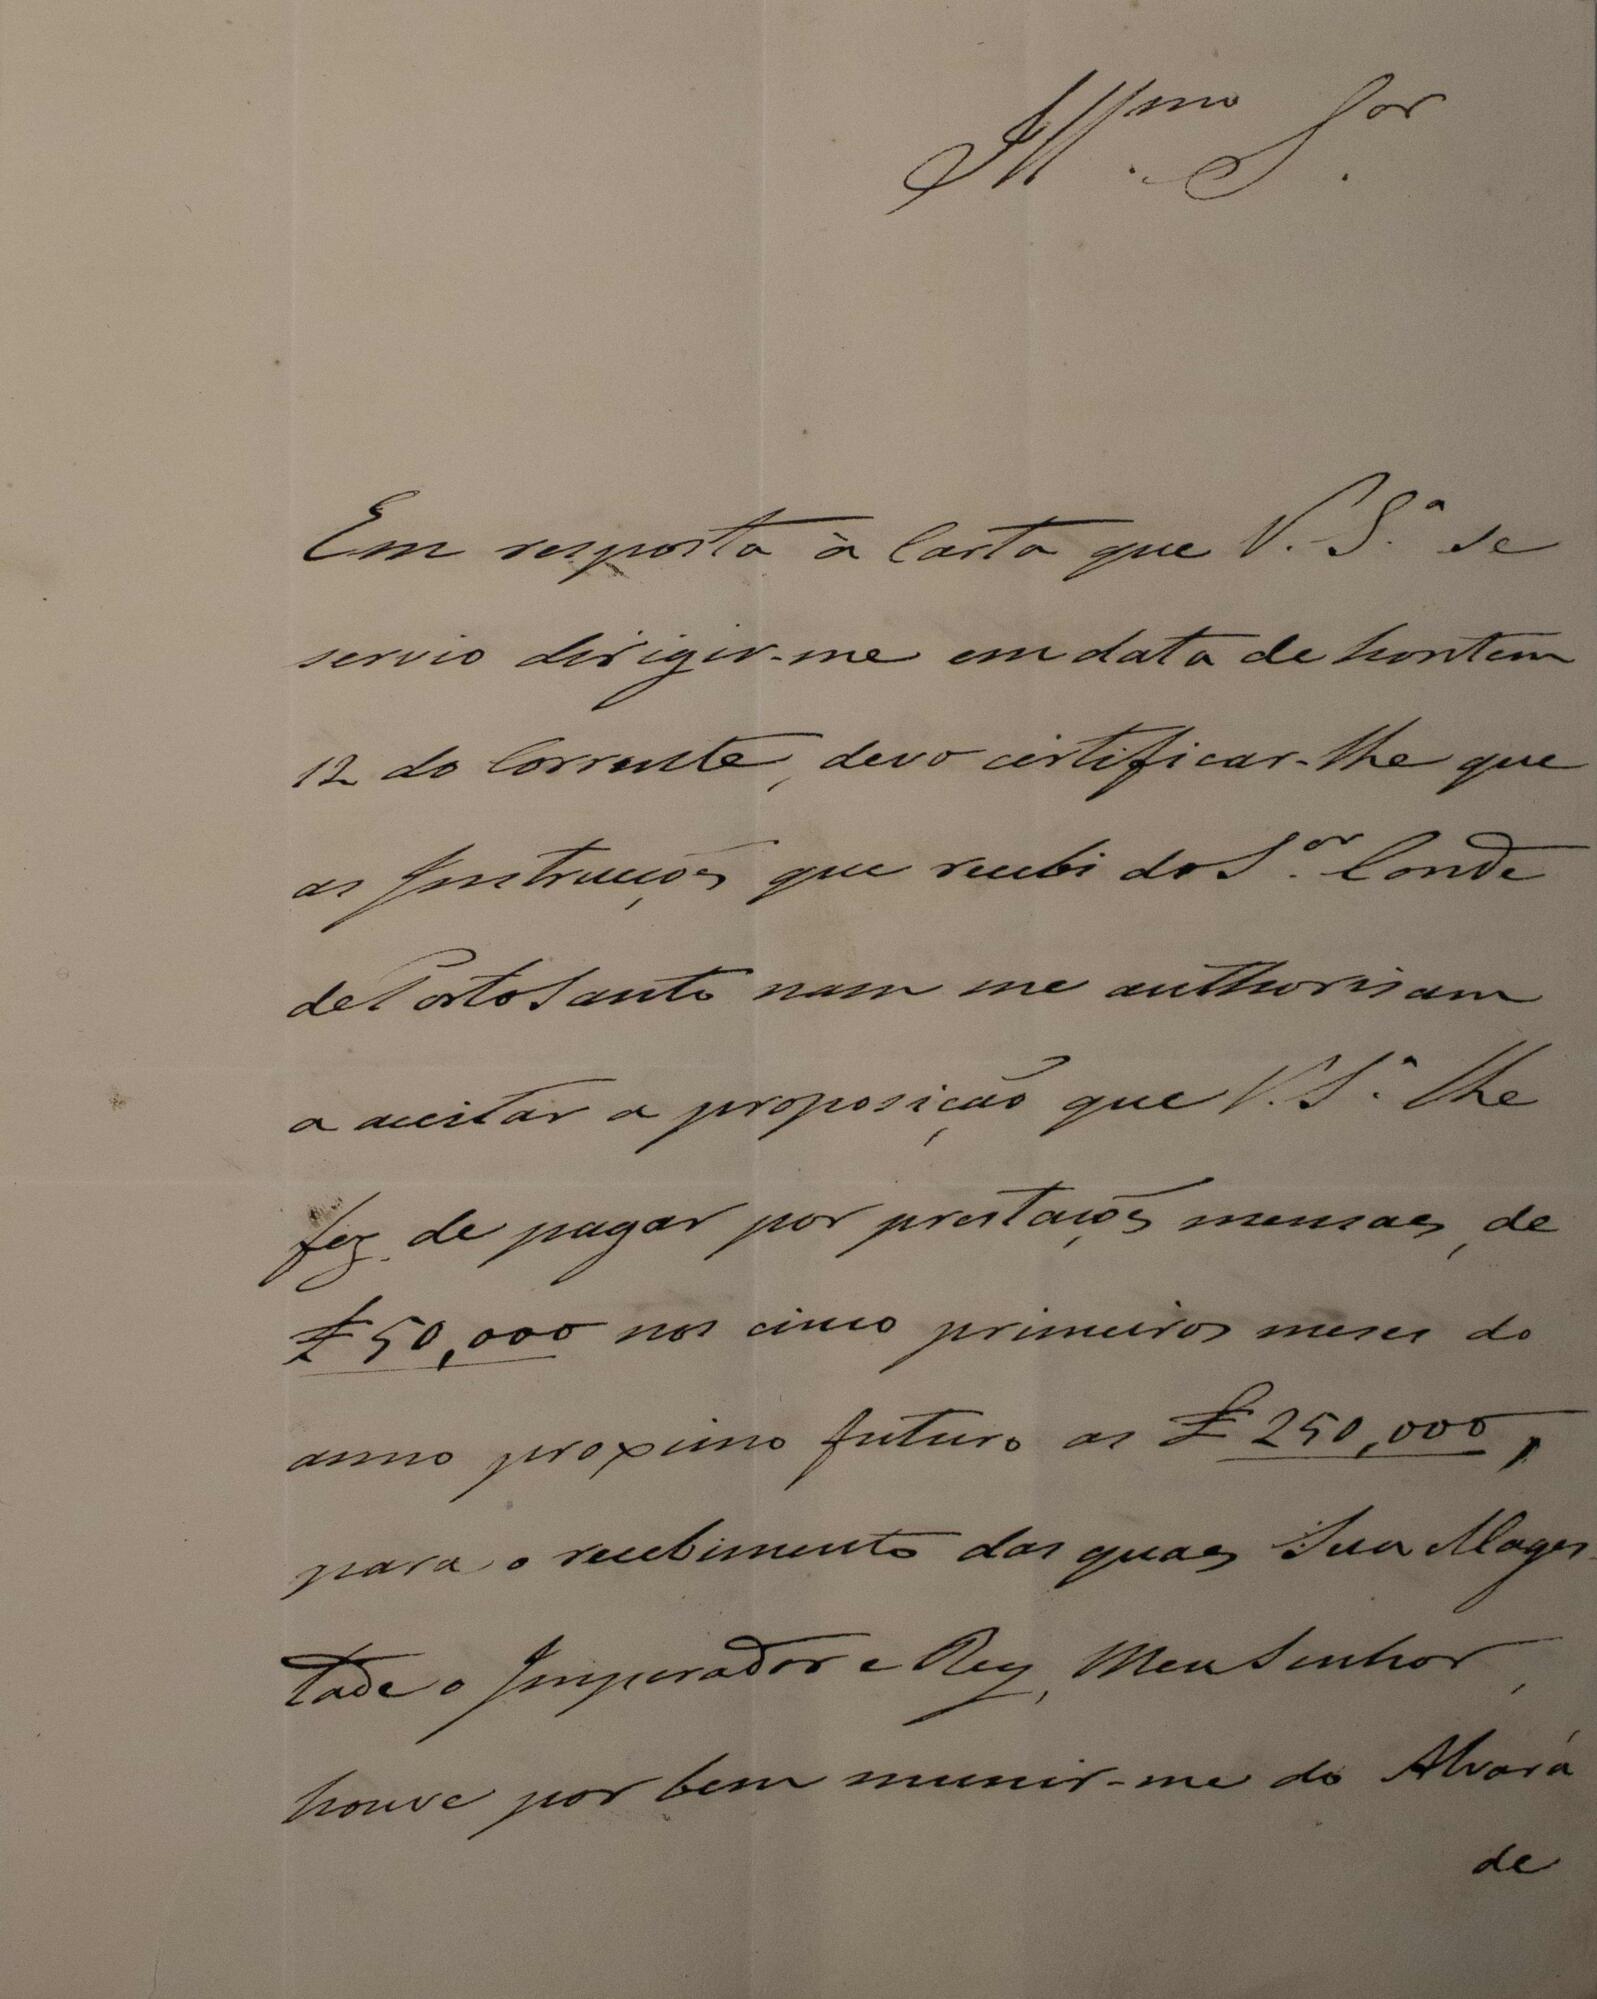 Illmo. Sor.
Em resposta à Carta que V. Sª. se
servio dirigir-me em data de hontem
12 do Corrente, devo certificar-lhe que
as Instrucções que recebi do Sor. Conde
de Porto Santo nam me authorisam
a aceitar a proposição que V. Sª. lhe
fez de pagar por prestações mensaes, de
£50,000 nos cinco primeiros meses do
anno proximo futuro as £250,000,
para o recebimento das quaes Sua Mages-
tade o Imperador e Rey, Meu Senhor,
houve por bem munir-me do Alvará
de